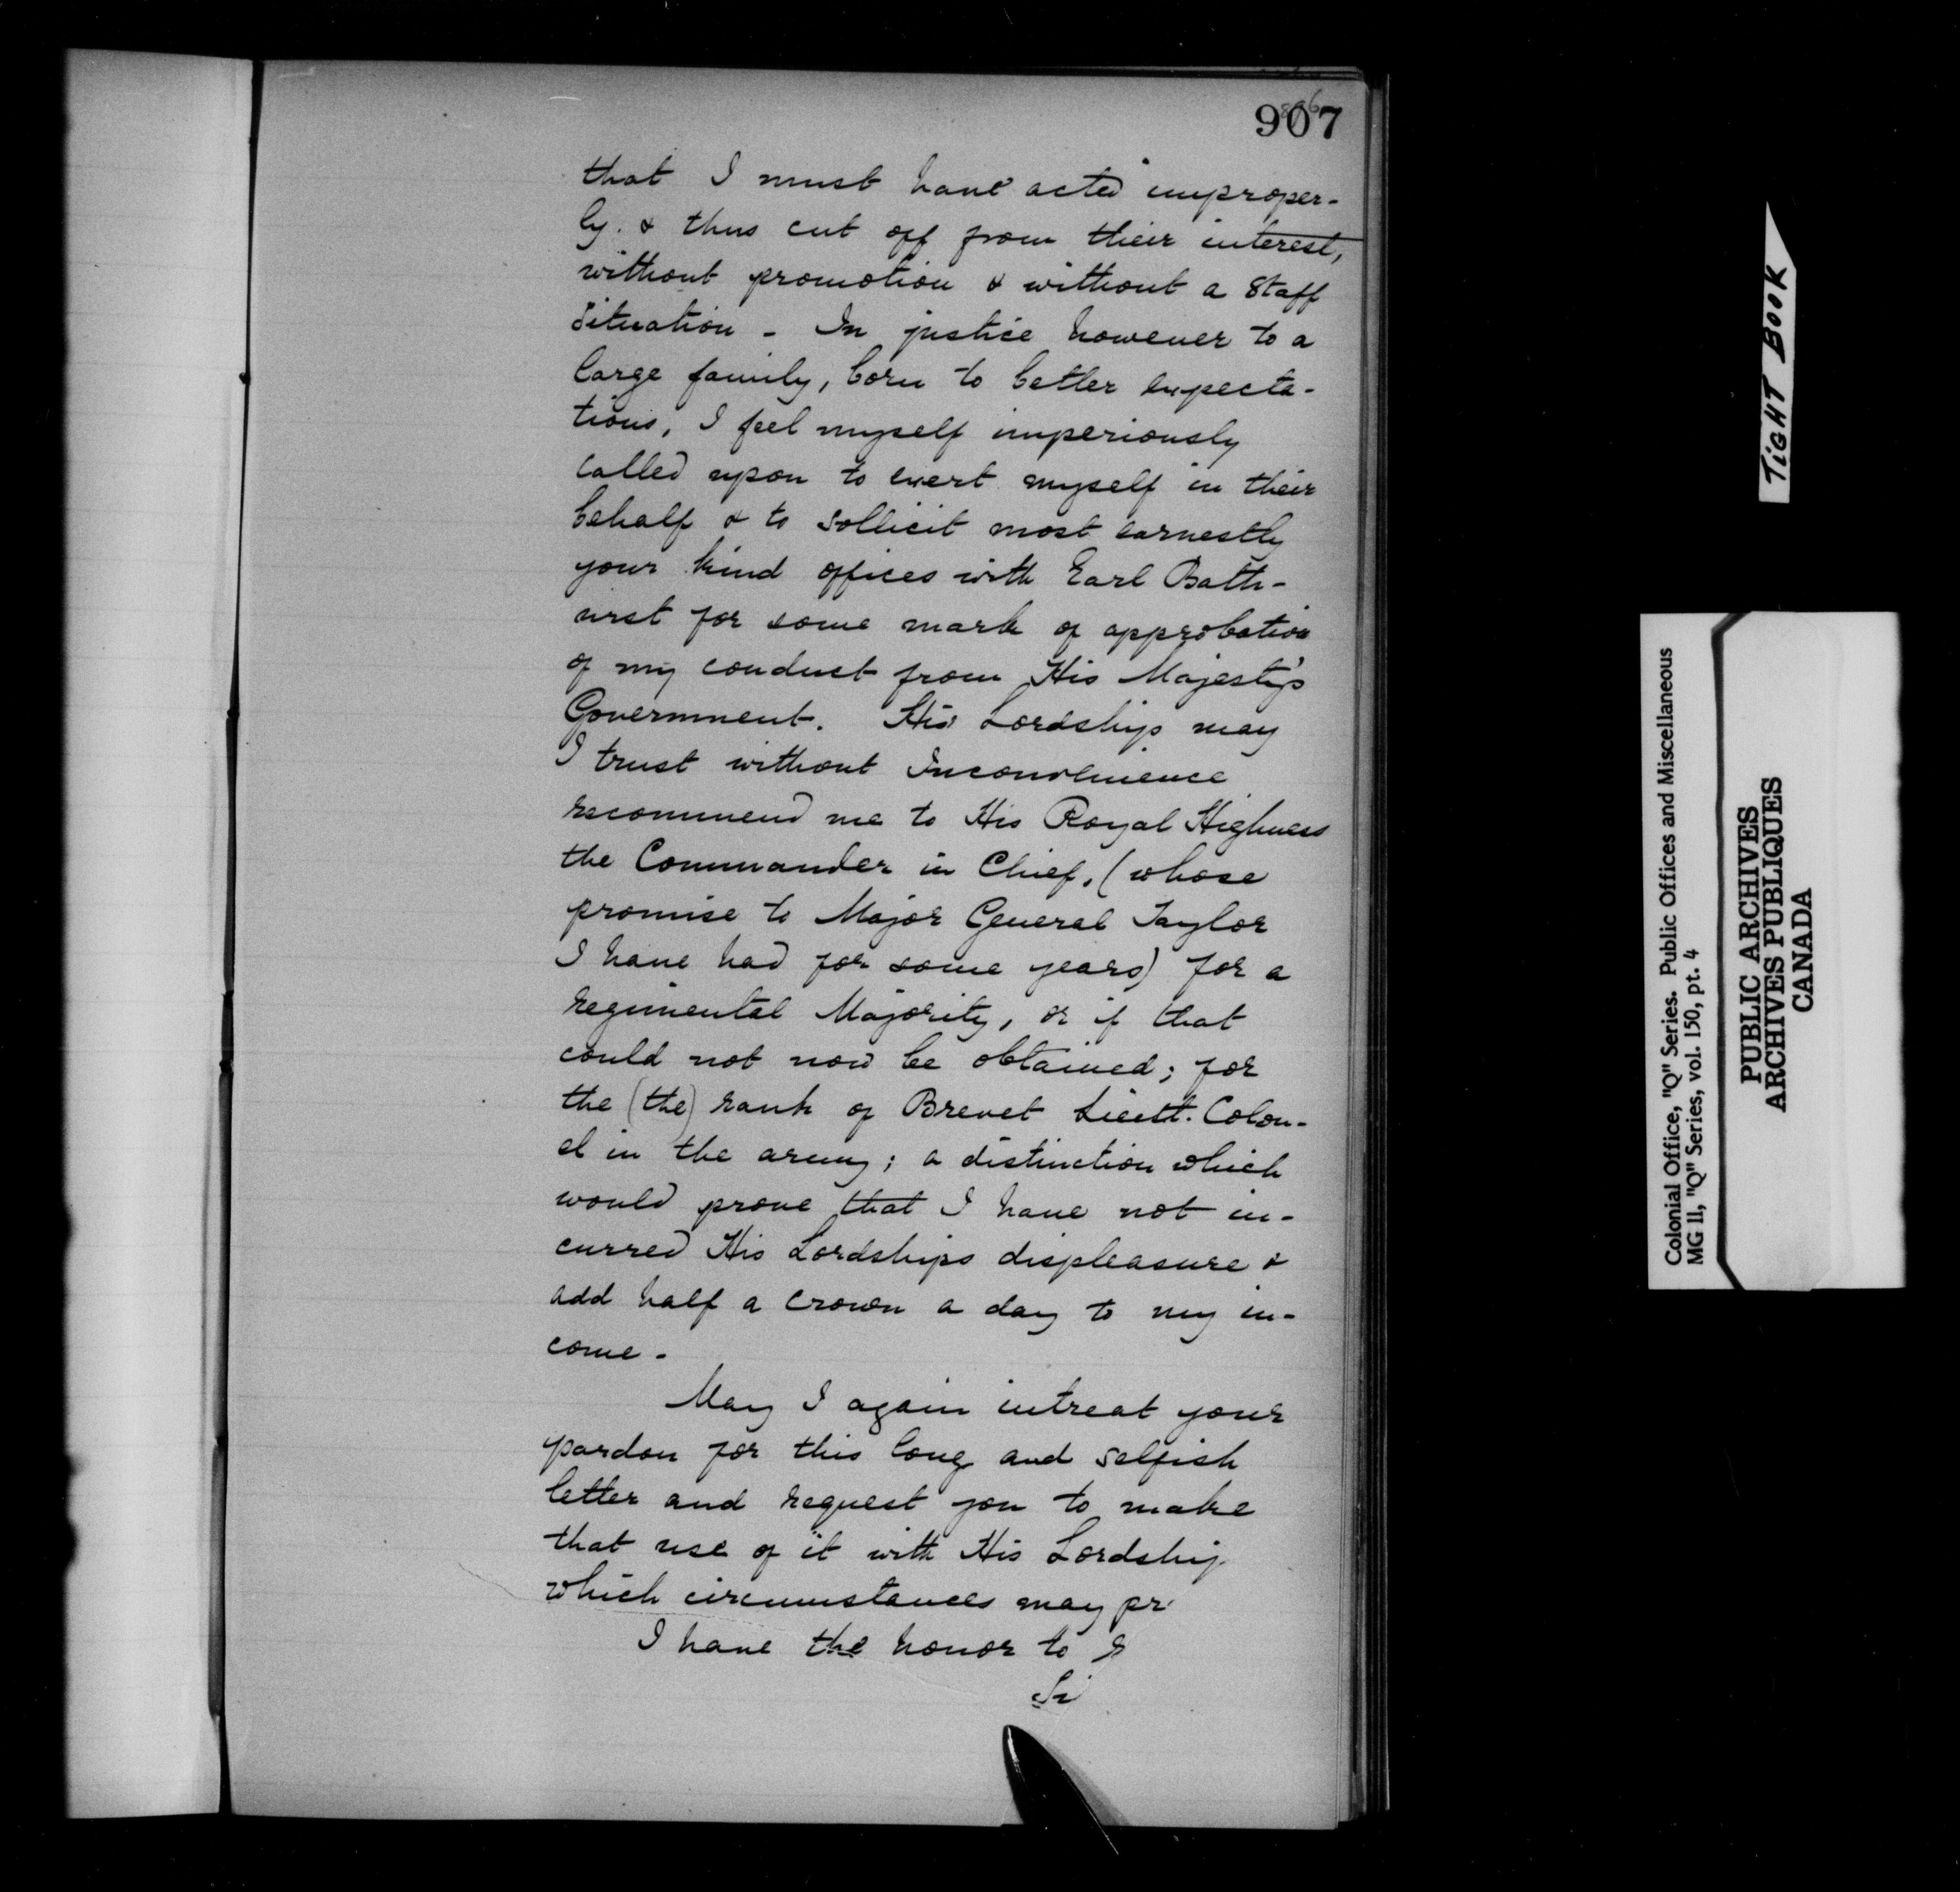 907
that I must have acted improper-
ly. & thus cut off from their interest,
without promotion & without a Staff
Situation - In justice however to a
large family, born to better expecta-
tions, I feel myself imperiously
called upon to exert myself in their
behalf & to sollicit most earnestly
your kind offices with Earl Bath-
urst for some mark of approbation
of my conduct from His Majesty's
Government. His Lordship may
I trust without Inconvenience
recommend me to His Royal Highness
the Commander in Chief, (whose
promise to Major General Taylor
I have had for some years) for a
regimental Majority, or if that
could not now be obtained; for
the (the) rank of Brevet Lieutt. Colon-
el in the army; a distinction which
would prove that I have not in-
curred His Lordships displeasure &
add half a crown a day to my in-
come -
May I again intreat your
pardon for this long and selfish
letter and request you to make
that use of it with His Lordship
which circumstances may
I have the honor to
TIGHT BOOK
Colonial Office, "Q" Series. Public Offices and Miscellaneous
MG 11, "Q" Series, vol. 150, pt. 4
PUBLIC ARCHIVES
ARCHIVES PUBLIQUES
CANADA